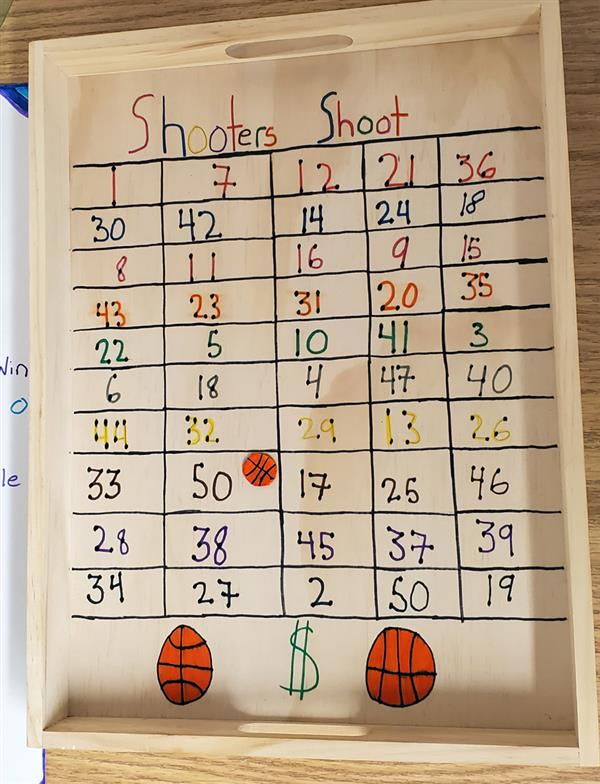 Shooters Shoot
1 7 12 21 36
30 42 14 24 18
8 11 16 9 15
43 23 31 20 35
22 5 10 41 3
6 18 4 47 40
44 32 29 13 26
33 50 17 25 46
28 38 45 37 39
34 27 2 50 19
$